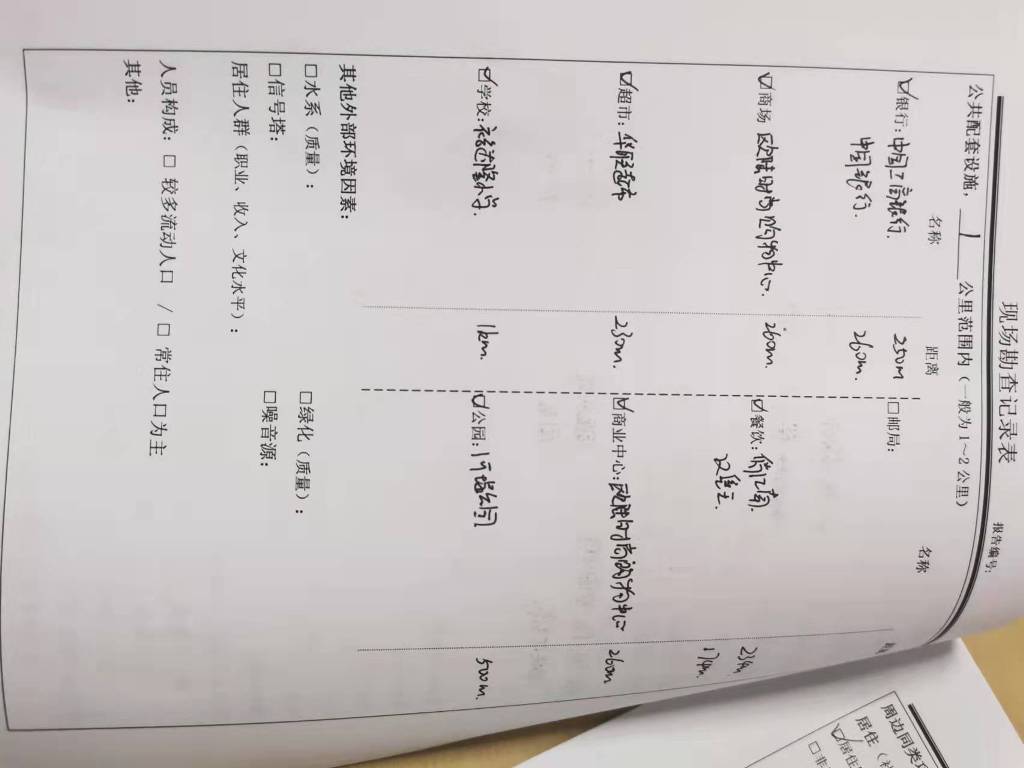 现场勘查记录表
报告编号:
公共配套设施, 1 公里范围内(一般为1~2公里)
名称 距离 名称
☑银行:中国工商银行. 250m □邮局:
中国银行. 260m.
☑商场 欧陆时尚购物中心. 260m. ☑餐饮: 江南. 234m
174m.
☑超市:华联超市 230m. ☑商业中心:欧陆时尚购物中心 260m
☑学校: 小学. 1km. ☑公园: 公园 500m.
其他外部环境因素:
□水系(质量): □绿化(质量):
□信号塔: □噪音源:
居住人群(职业、收入、文化水平):
人员构成:□ 较多流动人口 / □ 常住人口为主
其他:
周边同类
居住(
☑居住
□非